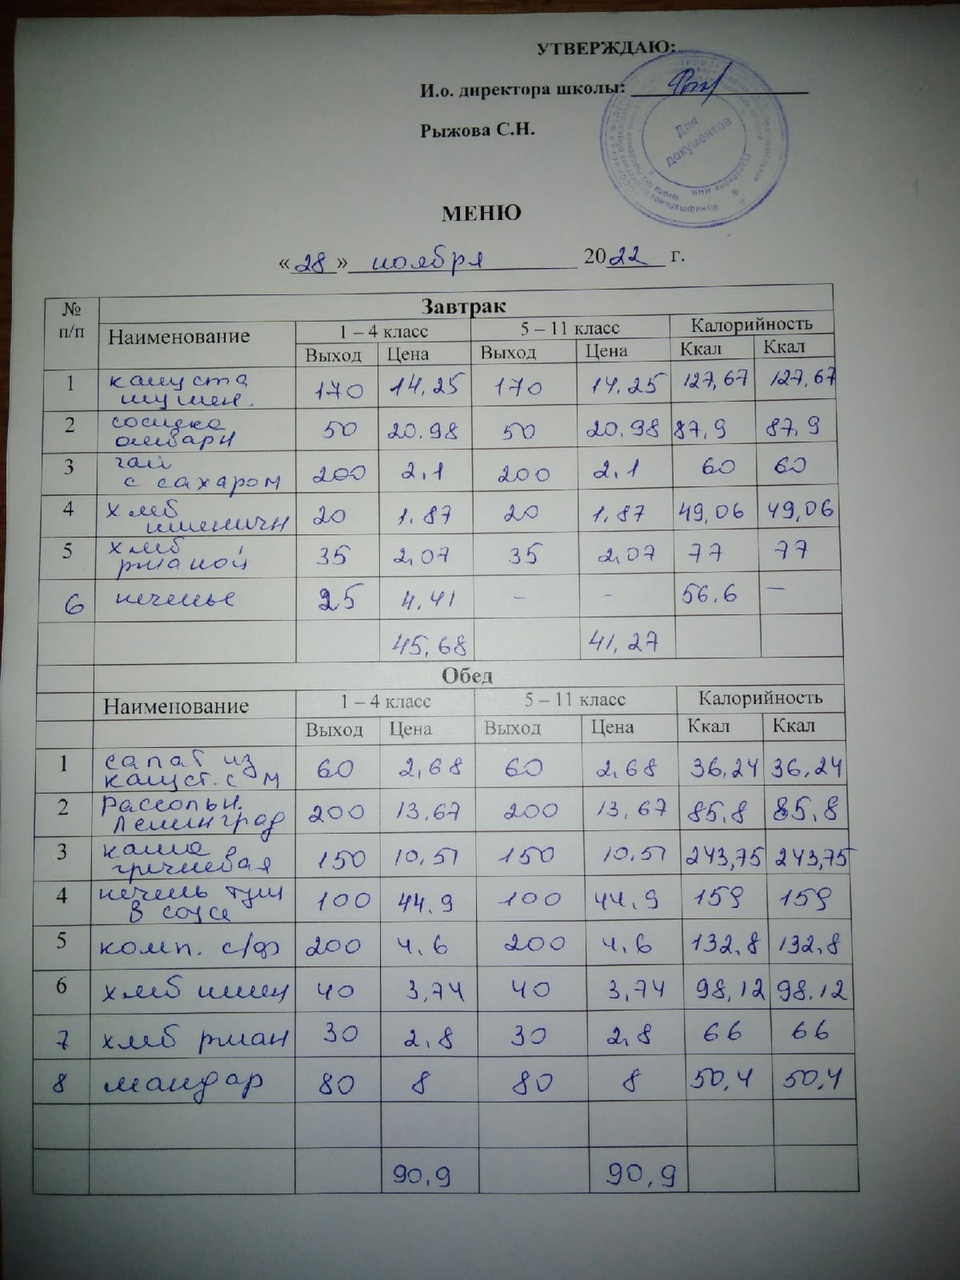 УТВЕРЖДАЮ:
И.о. директора школы:
Рыжова С.Н.
Для
документов
МЕНЮ
«28» ноября 2022 г.
№ п/п Завтрак
Наименование 1 – 4 класс 5 – 11 класс Калорийность
Выход Цена Выход Цена Ккал Ккал
1 капуста тушен. 170 14,25 170 14,25 127,67 127,67
2 сосиска отварн 50 20.98 50 20.98 87,9 87,9
3 чай с сахаром 200 2,1 200 2,1 60 60
4 хлеб пшеничн 20 1.87 20 1,87 49,06 49,06
5 хлеб ржаной 35 2,07 35 2,07 77 77
6 печенье 25 4,41 – - 56,6 —
45,68 41,27
Обед
Наименование 1 – 4 класс 5 – 11 класс Калорийность
Выход Цена Выход Цена Ккал Ккал
1 салат из капуст. с м 60 2,68 60 2,68 36,24 36,24
2 Рассольн. Ленинград 200 13,67 200 13,67 85,8 85,8
3 каша гречневая 150 10,51 150 10,51 243,75 243,75
4 печень туш в соусе 100 44,9 100 44,9 159 159
5 комп. с/ф 200 4,6 200 4,6 132,8 132,8
6 хлеб пшен 40 3,74 40 3,74 98,12 98.12
7 хлеб ржан 30 2,8 30 2,8 66 66
8 мандар 80 8 80 8 50,4 50,4
90,9 90,9